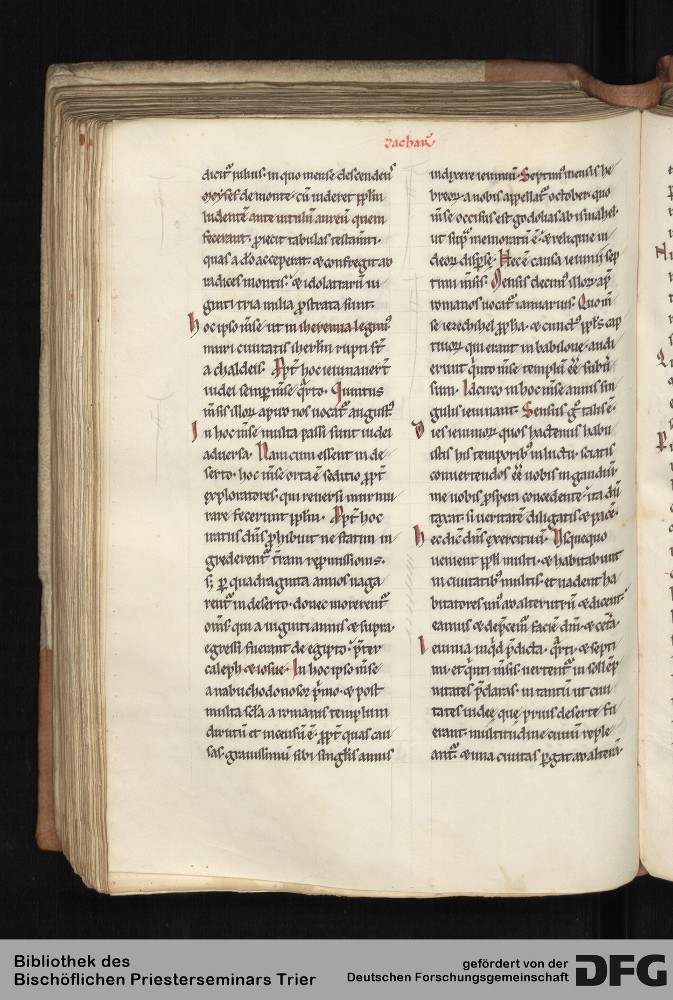 zachar̄
dicit᷑ julius. in quo mense descendens
moyses de monte. cū uideret pplm̄
ludentē ante uitulū aureū quem
fecerant. proiecit tabulas testam̄ti.
quas a do acceperat. & confregit ad
radices montis. & idolatrarū ui
ginti tria milia prostrata sunt.
hoc ipso m̄se ut in iheremia legim᷒
muri ciuitatis iherlm̄ rupti s̄t
a chaldeis. Ppt̄ hoc ieiunauer̄t
iudei semp m̄se q̄rto. Quintus
m̄sis illoꝝ apud nos uocat᷑ august᷒
In hoc m̄se multa passi sunt iudei
aduersa. Nam cum essent in de
serto. hoc m̄se orta ē seditio ꝓpt̄
exploratores. qui reuersi murmu
rare fecerunt pplm̄. Ppt̄ hoc
iratus dn̄s ꝓhibuit ne statim in
grederent᷑ t̄ram repromissionis.
s; ꝑ quadraginta annos uaga
rent᷑ in deserto. donec morerent᷑
om̄s qui a uiginti annis & supra
egressi fuerant de egipto. p̄ter
caleph & iosue. In hoc ipso m̄se
a nabuchodonosor p̄mo. & post
multa sc̄la a romanis templum
dirutū et incensū ē. ꝓpt̄ quas cau
sas. grauissimū sibi singl̄is annis
indixere ieiuniū. Septim᷒ mensis he
breoꝝ a nobis appellat᷑ october. quo
m̄se occisus est godolias ab ismahel.
ut sup̄ memoratū ē. & reliquie iu
deoꝝ disp̄se. Hec ē causa ieiunii sep
timi m̄sis. Mensis decim᷒ illoꝝ ap̄
romanos uocat᷑ ianuarius. Quo m̄
se iezechihel ꝓph̄a. & cunct᷒ ppl̄s cap
tiuoꝝ qui erant in babilone. audi
erunt q̄nto m̄se templū eē subu̇
sum. Idcirco in hoc m̄se annis sin
gulis ieiunant. Sensus g᷑ talis ē.
dies ieiunioꝝ quos hactenus habu
istis his temporib᷒ in luctū. sciatis
conuertendos eē uobis in gaudiū.
me uobis prospera concedente. ita dū
taxat. si ueritatē diligatis. & pacē.
hec dic̄ dn̄s exercituū. Usquequo
uenient ppl̄i multi. & habitabunt
in ciuitatib᷒ multis. et uadent ha
bitatores un᷒ ad alterutrū. & dicent.
eamus & dep̄cem᷑ faciē dn̄i. & cet̄a.
Ieiunia inq̇d p̄dicta. q̄rti. & septi
mi. et q̇nti m̄sis. uertent᷑ in soll'ep
nitates p̄claras. in tantū ut ciui
tates iudee que prius deserte fu
erant. multitudine ciuiū reple
ant᷑. & una ciuitas pergat ad alterā.
Bibliothek des
Bischöflichen Priesterseminars Trier
gefördert von der
Deutschen Forschungsgemeinschaft
DFG